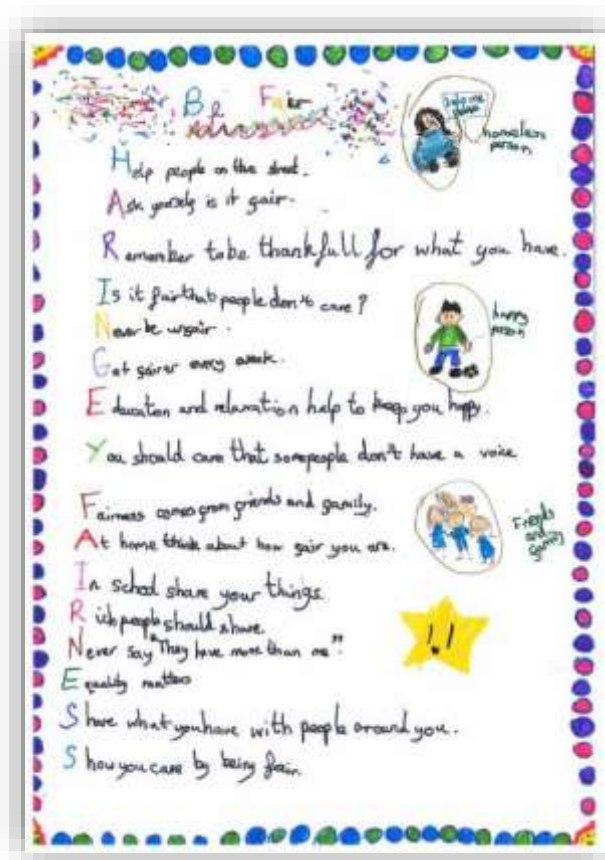 Be Fair
help me please
homeless person
Help people on the street.
Ask yourself is it fair.
Remember to be thankfull for what you have.
Is it fair that people don't care?
happy person
Never be unfair.
Get fairer every week.
Education and relaxation help to keep you happy.
You should care that some people don't have a voice
Fairness comes from friends and family.
Friends and family
At home think about how fair you are.
In school share your things.
Rich people should share
Never say "They have more than me".
Equality matters
Share what you have with people around you.
Show you care by being fair.